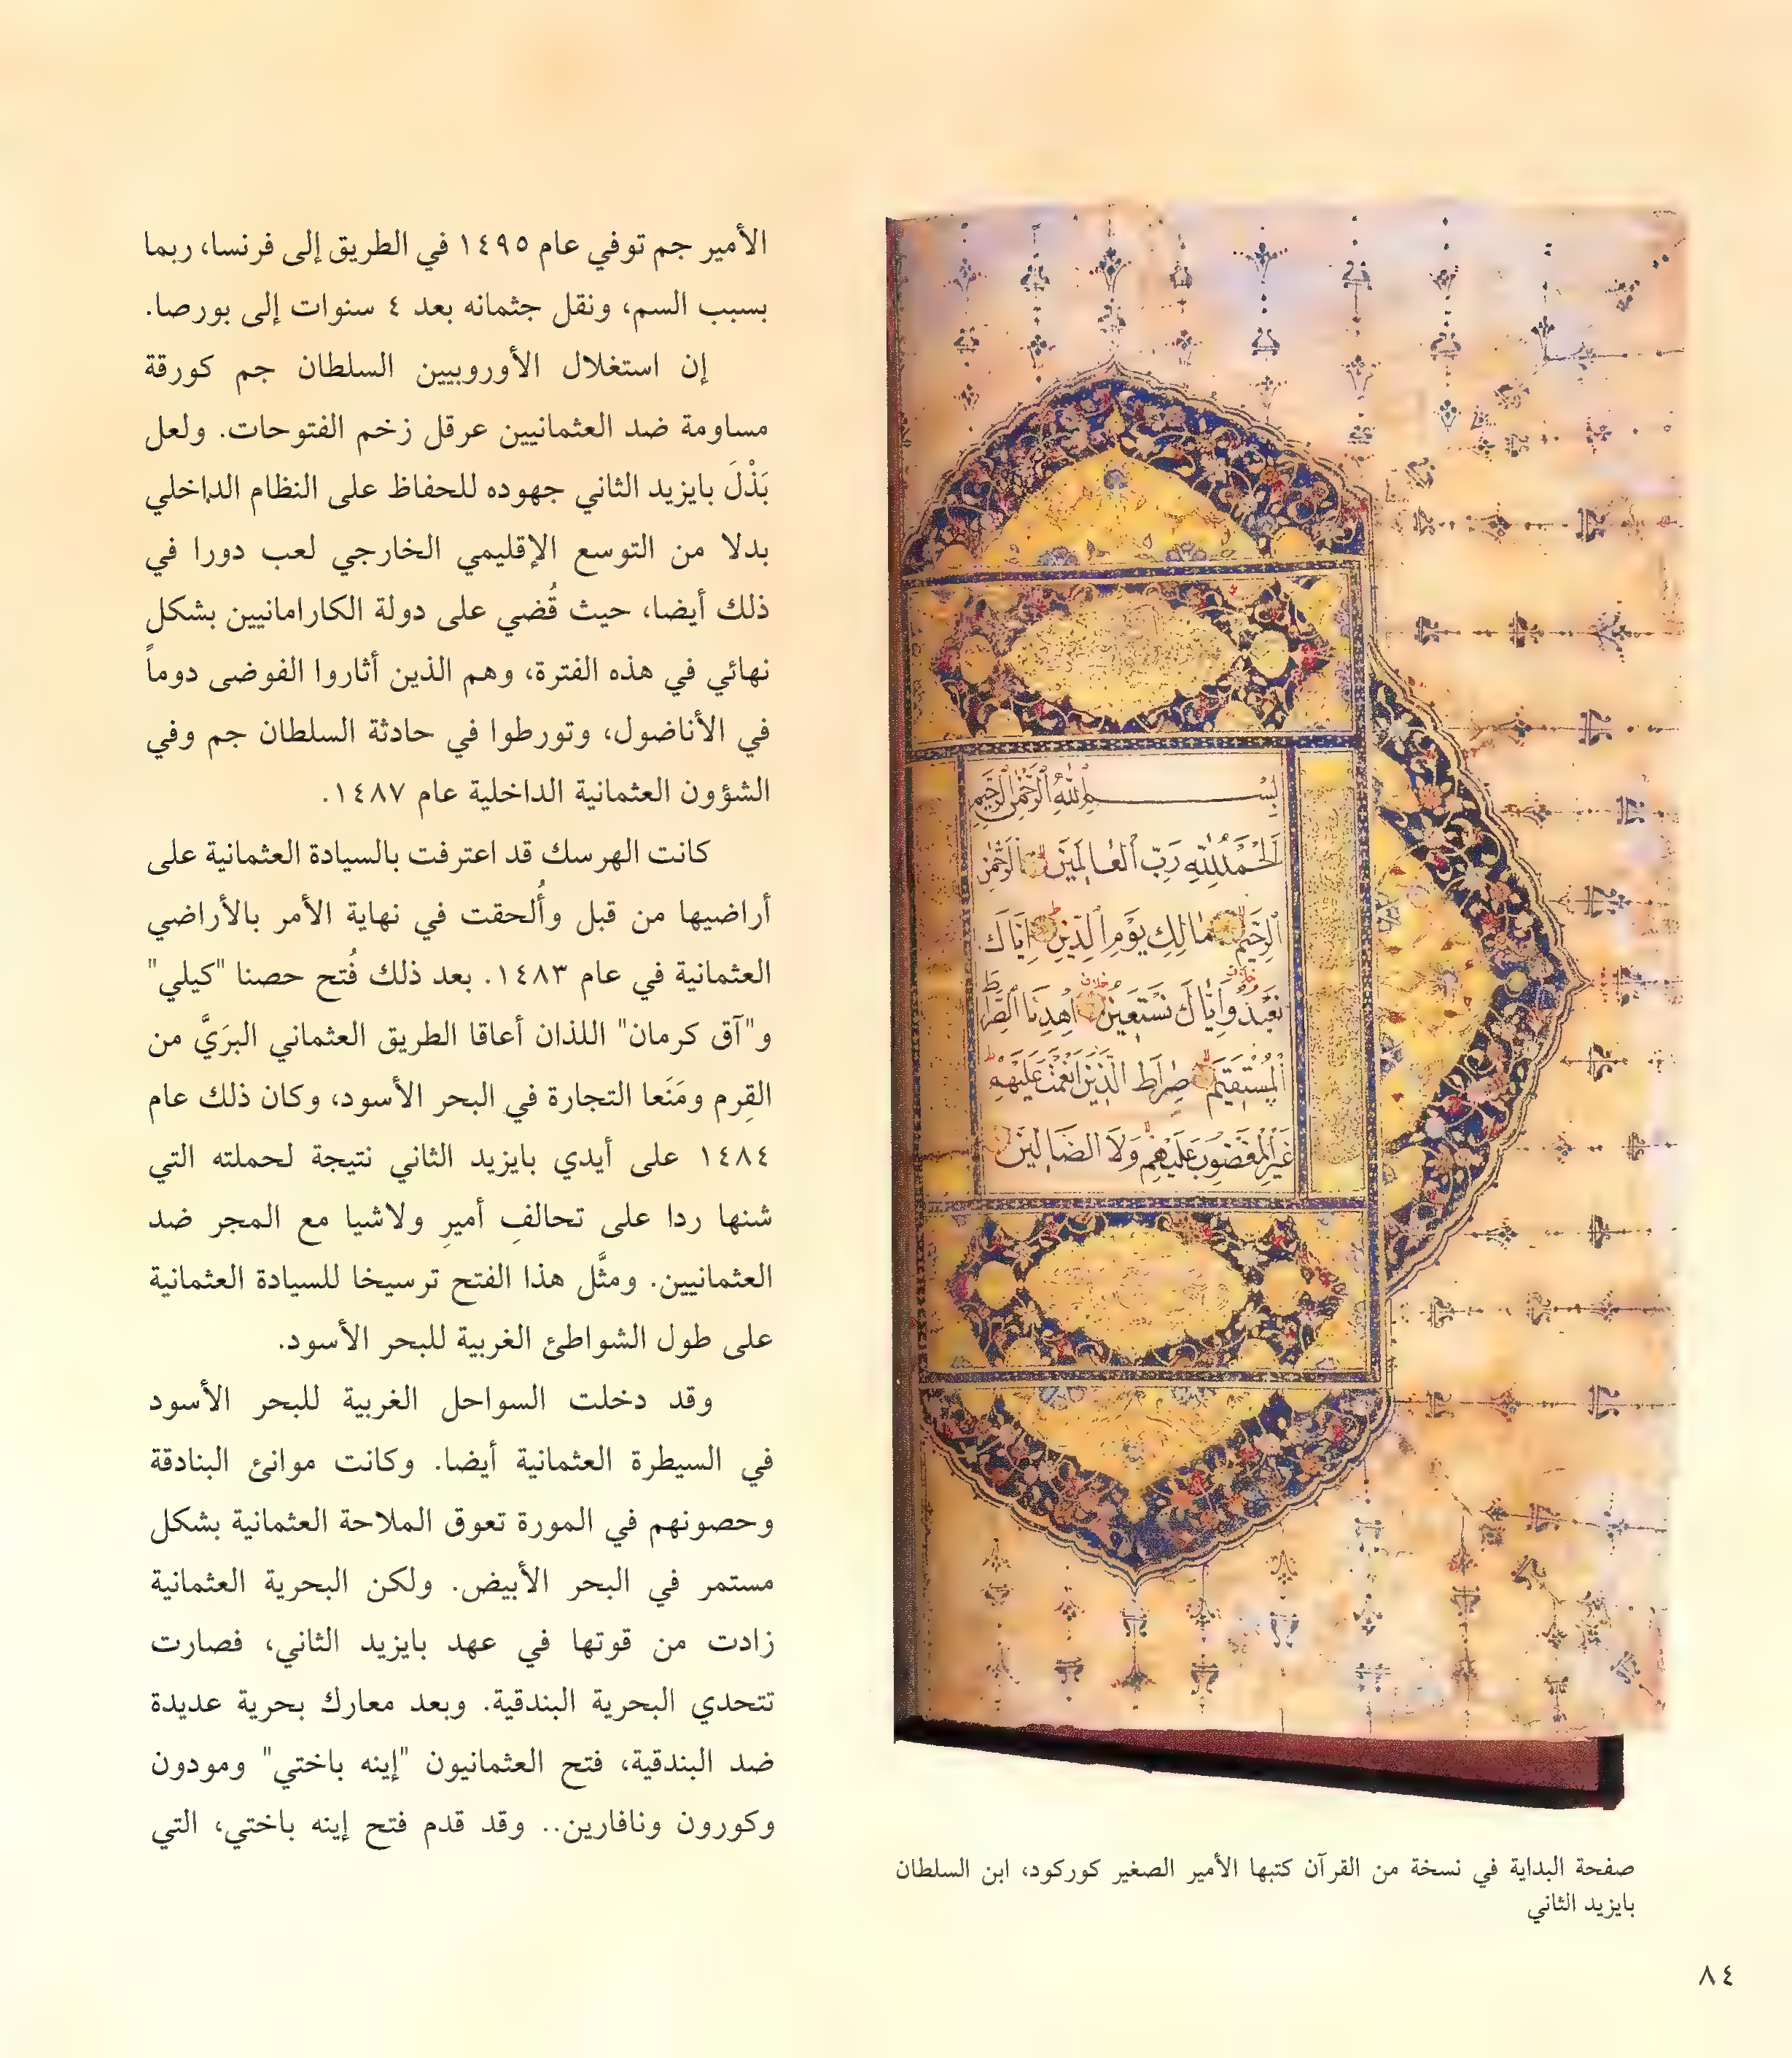 الأمير جم توفي عام ١٤٩٥ في الطريق إلى فرنسا، ربما
بسبب السم، ونقل جثمانه بعد ٤ سنوات إلى بورصا.
إن استغلال الأوروبيين السلطان جم كورقة
مساومة ضد العثمانيين عرقل زخم الفتوحات. ولعل
بَذْلَ بايزيد الثاني جهوده للحفاظ على النظام الداخلي
بدلا من التوسع الإقليمي الخارجي لعب دورا في
ذلك أيضا، حيث قُضي على دولة الكارامانيين بشكل
نهائي في هذه الفترة، وهم الذين أثاروا الفوضى دوماً
في الأناضول، وتورطوا في حادثة السلطان جم وفي
الشؤون العثمانية الداخلية عام ١٤٨٧.
كانت الهرسك قد اعترفت بالسيادة العثمانية على
أراضيها من قبل وأُلحقت في نهاية الأمر بالأراضي
العثمانية في عام ١٤٨٣. بعد ذلك فُتح حصنا "كيلي"
و"آق كرمان" اللذان أعاقا الطريق العثماني البرَيَّ من
القِرم ومَنَعا التجارة في البحر الأسود، وكان ذلك عام
١٤٨٤ على أيدي بايزيد الثاني نتيجة لحملته التي
شنها ردا على تحالفِ أميرِ ولاشيا مع المجر ضد
العثمانيين. ومثَّل هذا الفتح ترسيخا للسيادة العثمانية
على طول الشواطئ الغربية للبحر الأسود.
وقد دخلت السواحل الغربية للبحر الأسود
في السيطرة العثمانية أيضا. وكانت موانئ البنادقة
وحصونهم في المورة تعوق الملاحة العثمانية بشكل
مستمر في البحر الأبيض. ولكن البحرية العثمانية
زادت من قوتها في عهد بايزيد الثاني، فصارت
تتحدي البحرية البندقية. وبعد معارك بحرية عديدة
ضد البندقية، فتح العثمانيون "إينه باختي" ومودون
وكورون ونافارين.. وقد قدم فتح إينه باختي، التي
بِسْمِ اللهِ الرَّحْمٰنِ الرَّحِيمِ
اَلْحَمْدُ لِلّٰهِ رَبِّ الْعَالَمِينَ الرَّحْمٰنِ
الرَّحِيمِ مَالِكِ يَوْمِ الدِّينِ اِيَّاكَ
نَعْبُدُ وَاِيَّاكَ نَسْتَعِينُ اِهْدِنَا الصِّرَاطَ
الْمُسْتَقِيمَ صِرَاطَ الَّذِينَ اَنْعَمْتَ عَلَيْهِمْ
غَيْرِ الْمَغْضُوبِ عَلَيْهِمْ وَلَا الضَّالِّينَ
صفحة البداية في نسخة من القرآن كتبها الأمير الصغير كوركود، ابن السلطان
بايزيد الثاني
٨٤